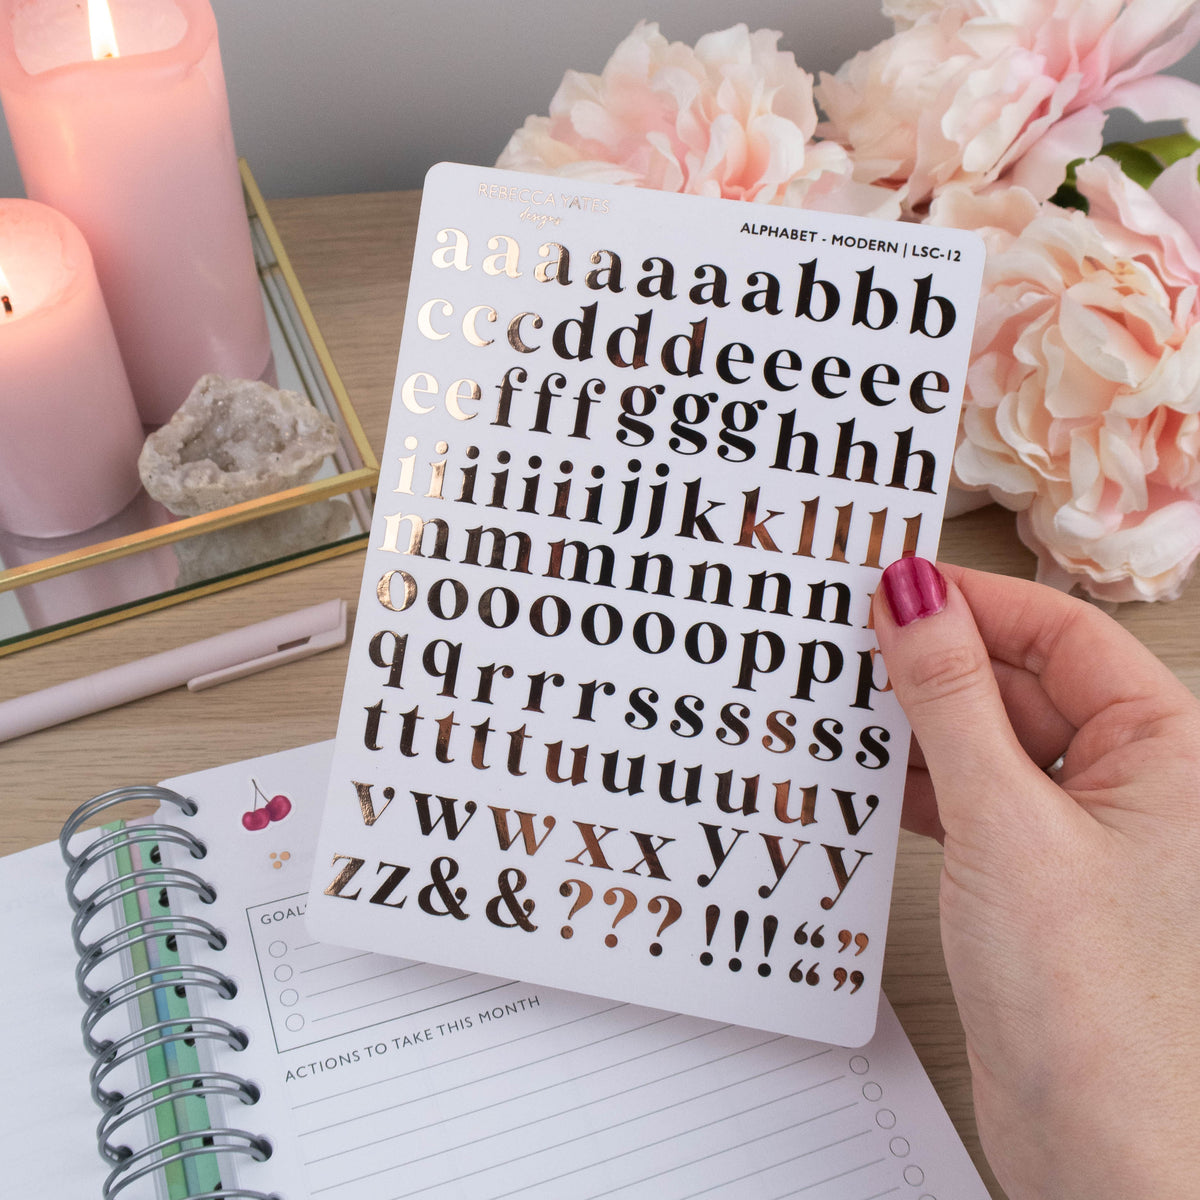 REBECCA YATES
designs
ALPHABET - MODERN | LSC-12
aaaaaaabbb
cccdddeeeee
eefffggghhh
iiiiiiijjkkllll
mmmnnnn
oooooooppp
qqrrrssssss
tttttuuuuuv
vwwxxyyy
zz&&???!!!“”
“”
GOAL
ACTIONS TO TAKE THIS MONTH